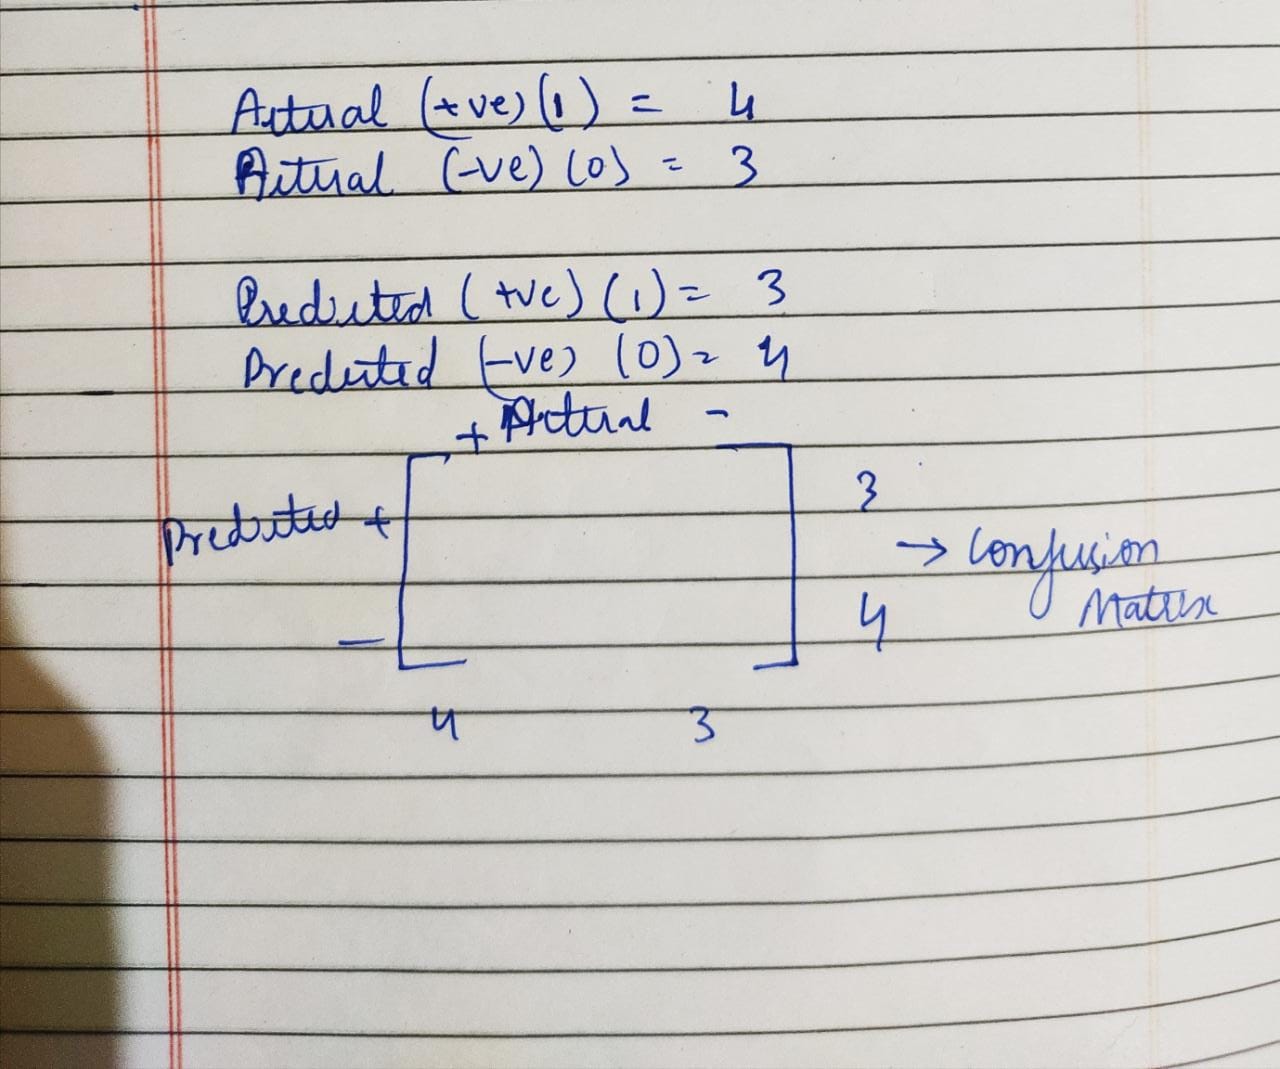 Actual (+ve) (1) = 4
Actual (-ve) (0) = 3
Predicted (+ve) (1) = 3
Predicted (-ve) (0) = 4
+ Actual -
3
Predicted +
→ Confusion
Matrix
4
-
4 3